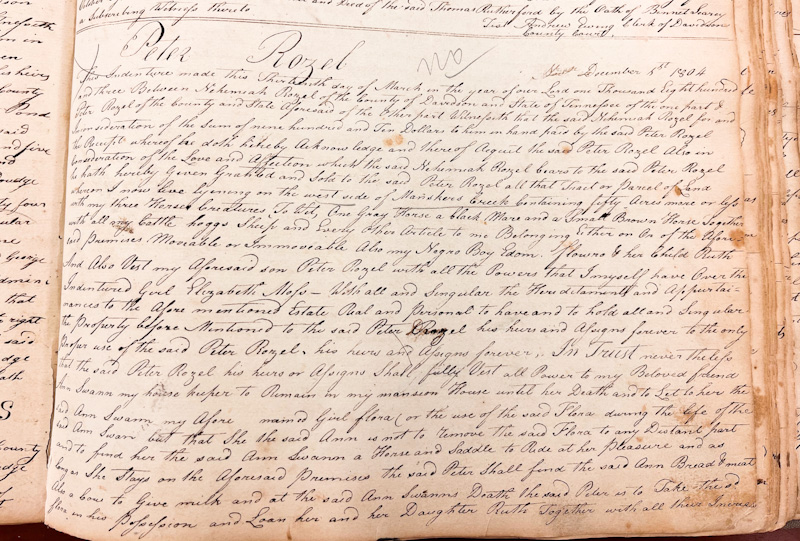 a Subscribing Witness thereto and Prov'd of the said Thomas Rutherford by the Oath of Bennet Searcy
Test Andrew Ewing Clerk of Davidson
County Court
Peter Rozel
no
December 1st 1804
This Indenture made this Thirteenth day of March in the year of our Lord one Thousand Eight hundred
and three Between Nehemiah Rozel of the County of Davidson and State of Tennessee of the one part &
Peter Rozel of the County and State Aforesaid of the Other part Witnesseth that the said Nehemiah Rozel for and
in consideration of the Sum of nine hundred and Ten Dollars to him in hand paid by the said Peter Rozel
the Receipt whereof he doth hereby Acknowledge and thereof Aquit the said Peter Rozel Also in
Consideration of the Love and Affection which the said Nehemiah Rozel bears to the said Peter Rozel
he hath hereby Given Granted and Sold to the said Peter Rozel all that Tract or Parcel of Land
whereon I now live Lying on the west side of Manskers Creek Containing fifty Acres more or less
with my three Horse Creatures, To Wit, One Gray Horse a black Mare and a Small Brown Horse Together
with all my Cattle hoggs Sheep and Every Other Article to me Belonging Either on Or of the Afore
said premises Moveable or Immoveable Also my Negro Boy Edom. Flowre & her Child Ruth
And Also Vest my Aforesaid son Peter Rozel with all the Powers that I myself have Over the
Indentured Girl Elizabeth Moss — With all and Singular the Hereditaments and Appurtai-
nances to the Afore mentioned Estate Real and Personal to have and to hold all and Singular
the Property before Mentioned to the said Peter Rozel his heirs and Assigns forever to the only
proper use of the said Peter Rozel, his heirs and Assigns forever, In Trust nevertheless
that the said Peter Rozel his heirs or Assigns Shall fully Vest all Power to my Beloved friend
Ann Swann my house keeper to Remain in my mansion House until her Death and to Let to her the
said Ann Swann my Afore named Girl flora (or the use of the said Flora during the life of the
said Ann Swan but that She the said Ann is not to remove the said Flora to any Distant part
and to find her the said Ann Swann a Horse and Saddle to Ride at her Pleasure and as
long as She Stays on the Aforesaid Premises the said Peter Shall find the said Ann Bread & meat
Also a Cow to Give milk and at the said Ann Swanns Death the said Peter is to Take the sd
flora in his Possession and Loan her and her Daughter Ruth Together with all their Increase